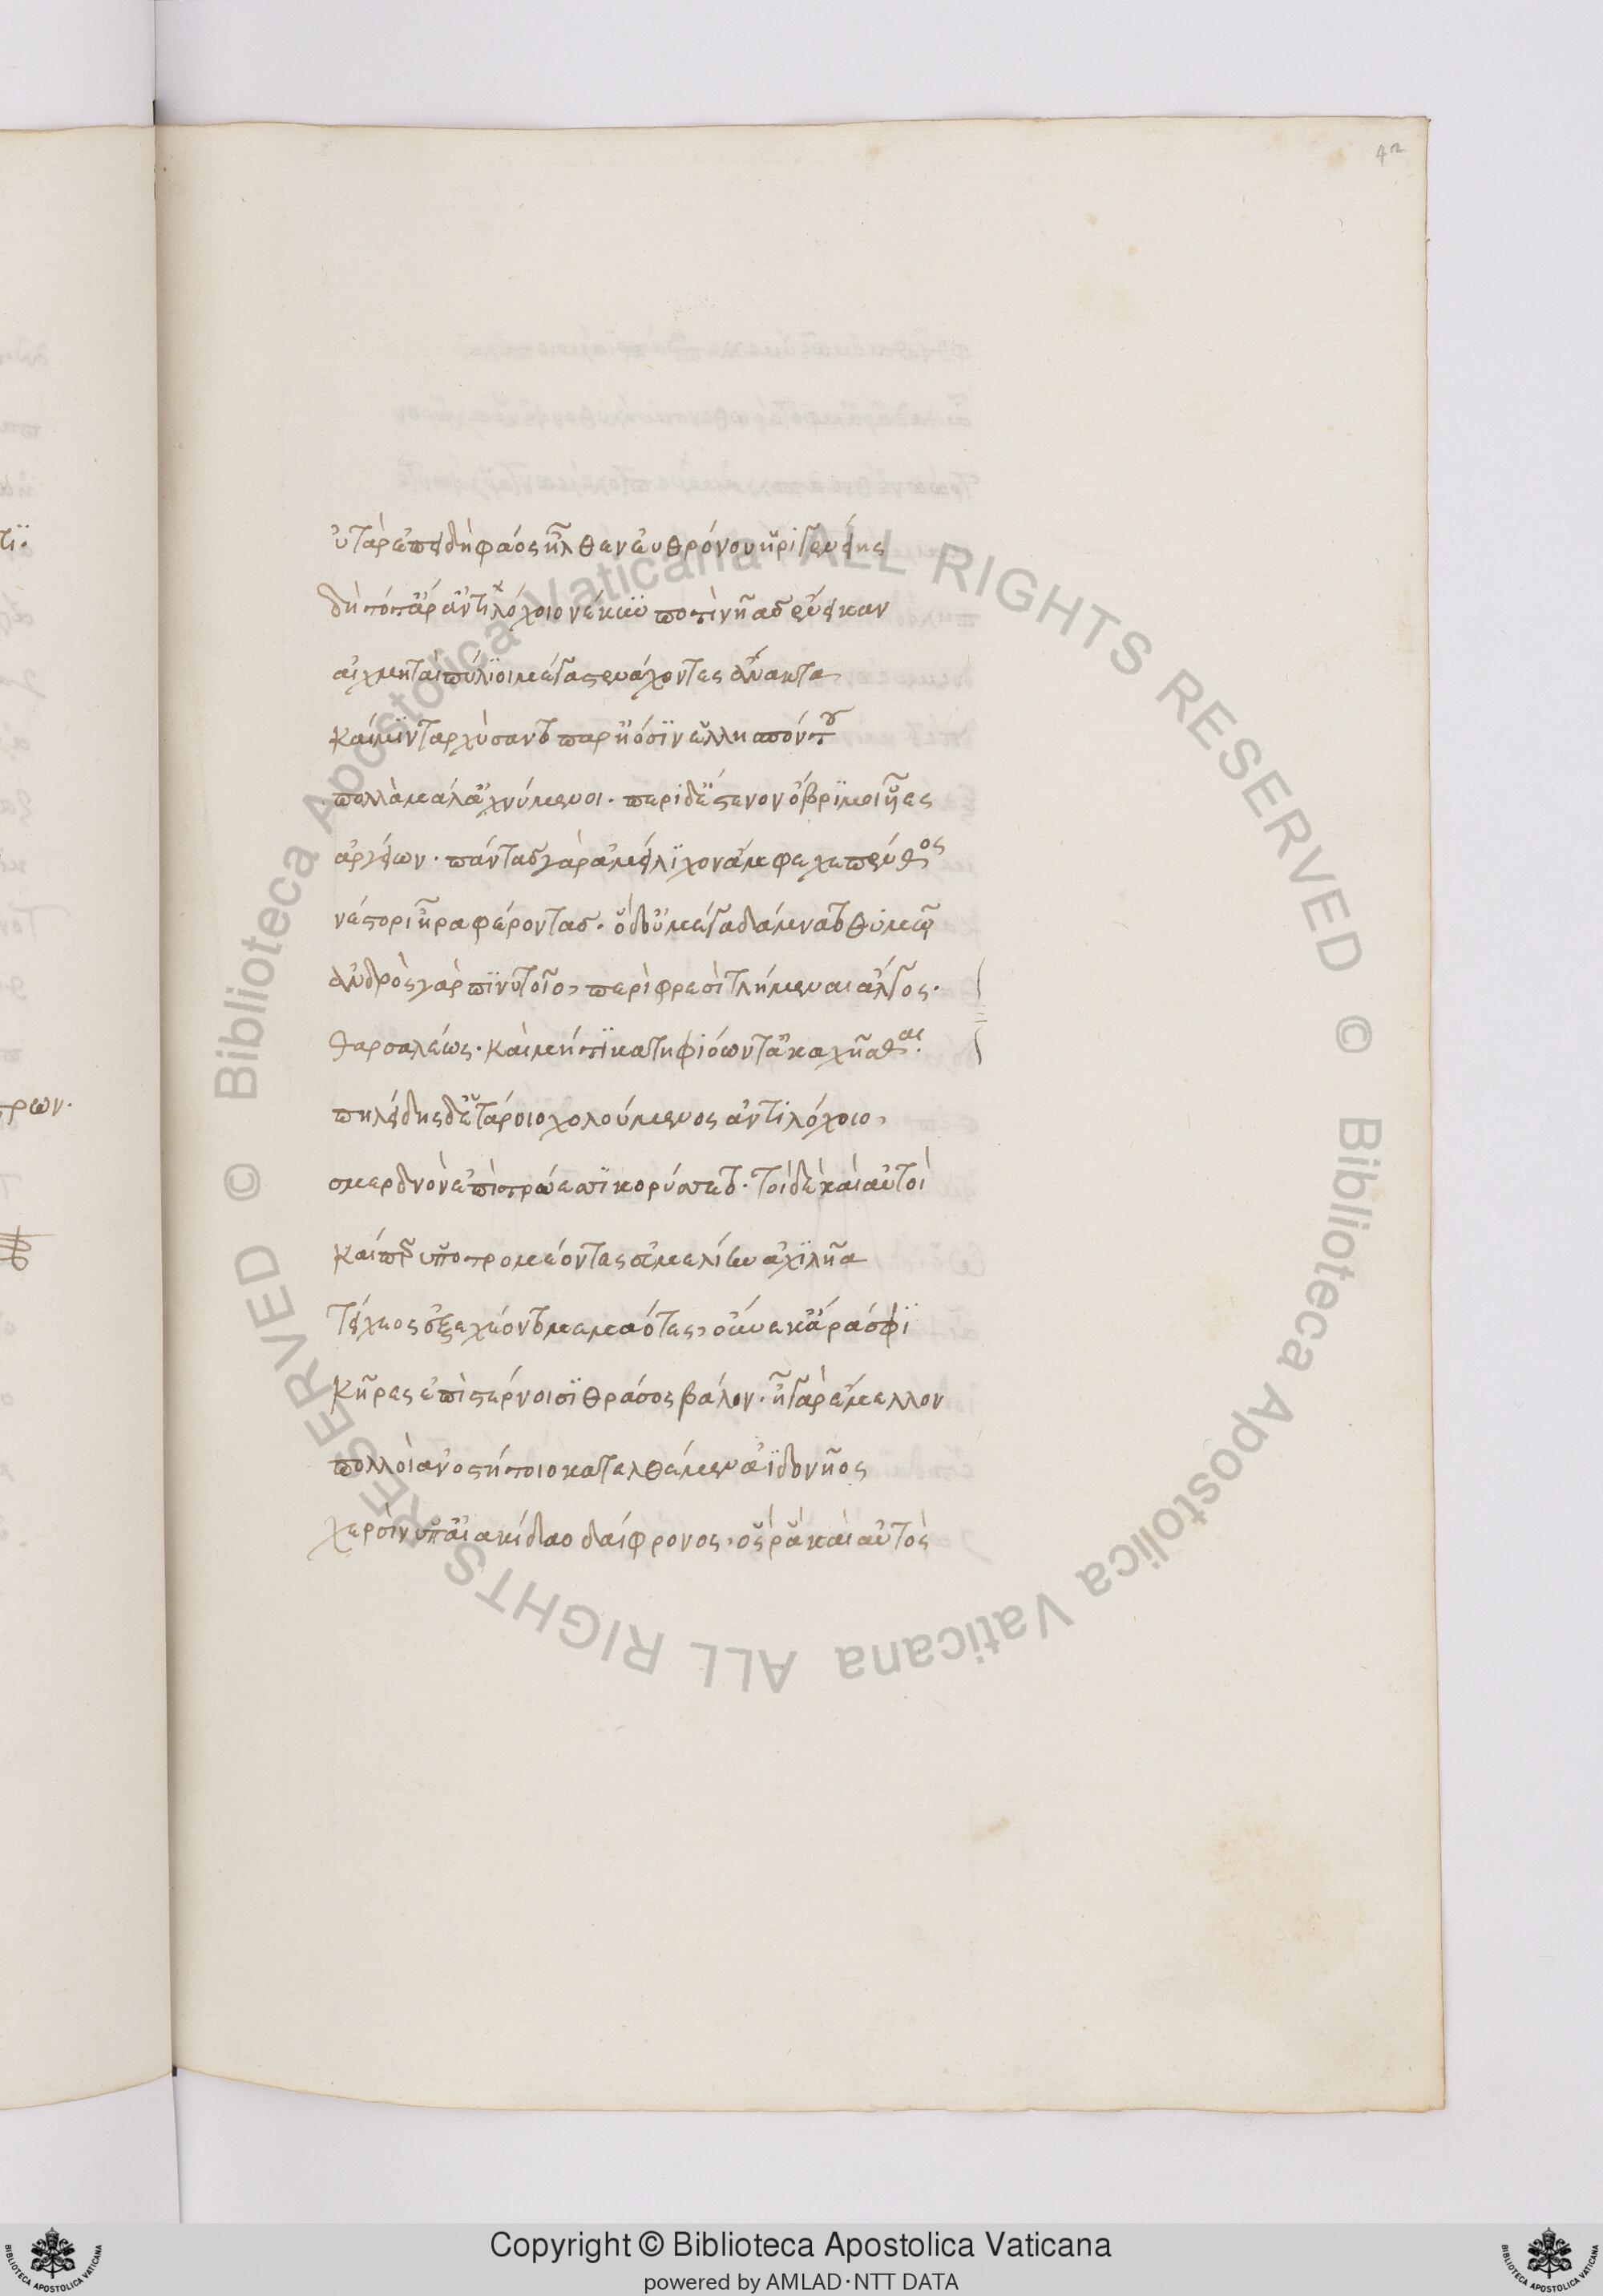 42
ὐτὰρ ἐπειδὴ φάος ἦλθεν ἐυθρόνου ἠριγενείης
δὴ τότ' ἄρ ἀντιλόχοιο νέκυν ποτὶ νῆας ἔνεικαν
αἰχμηταὶ πύλϊοι μέγα στενάχοντες ἄνακτα
καί μϊν ταρχύσαντο παρ ἠόσϊν ἑλλησπόντου
πολλὰ μάλ' ἀχνύμενοι· περὶ δ' ἔστενον ὄβρϊμοι υἷες
ἀργείων· πάντας γὰρ ἀμείλϊχον ἄμφεχε πένθος
νέστορι ἦρα φέροντας· ὁ δ' οὐ μέγα δάμνατο θυμῷ
ἀνδρὸς γὰρ πϊνυτοῖο, περὶ φρεσὶ τλήμεναι ἄλγος·
θαρσαλέως· καὶ μή τϊ κατηφιόωντ' ἀκαχῆσθαι·
πηλείδης δ' ἑτάροιο χολούμενος ἀντιλόχοιο,
σμερδνὸν ἐπὶ τρώεσσϊ κορύσσετο· τοὶ δὲ καὶ αὐτοὶ
καί περ ὑποτρομέοντες ἐυμελίην ἀχϊλῆα
τείχεος ἐξεχέοντο μεμαότες, οὕνεκ' ἄρά σφϊ
κῆρες ἐπὶ στέρνοισϊ θράσος βάλον· ἦ γὰρ ἔμελλον
πολλοὶ ἀνοστήτοιο κατελθέμεν ἀϊδονῆος
χερσὶν ὑπ' αἰακίδαο δαίφρονος, ὅς ῥα καὶ αὐτὸς
Copyright © Biblioteca Apostolica Vaticana
powered by AMLAD·NTT DATA